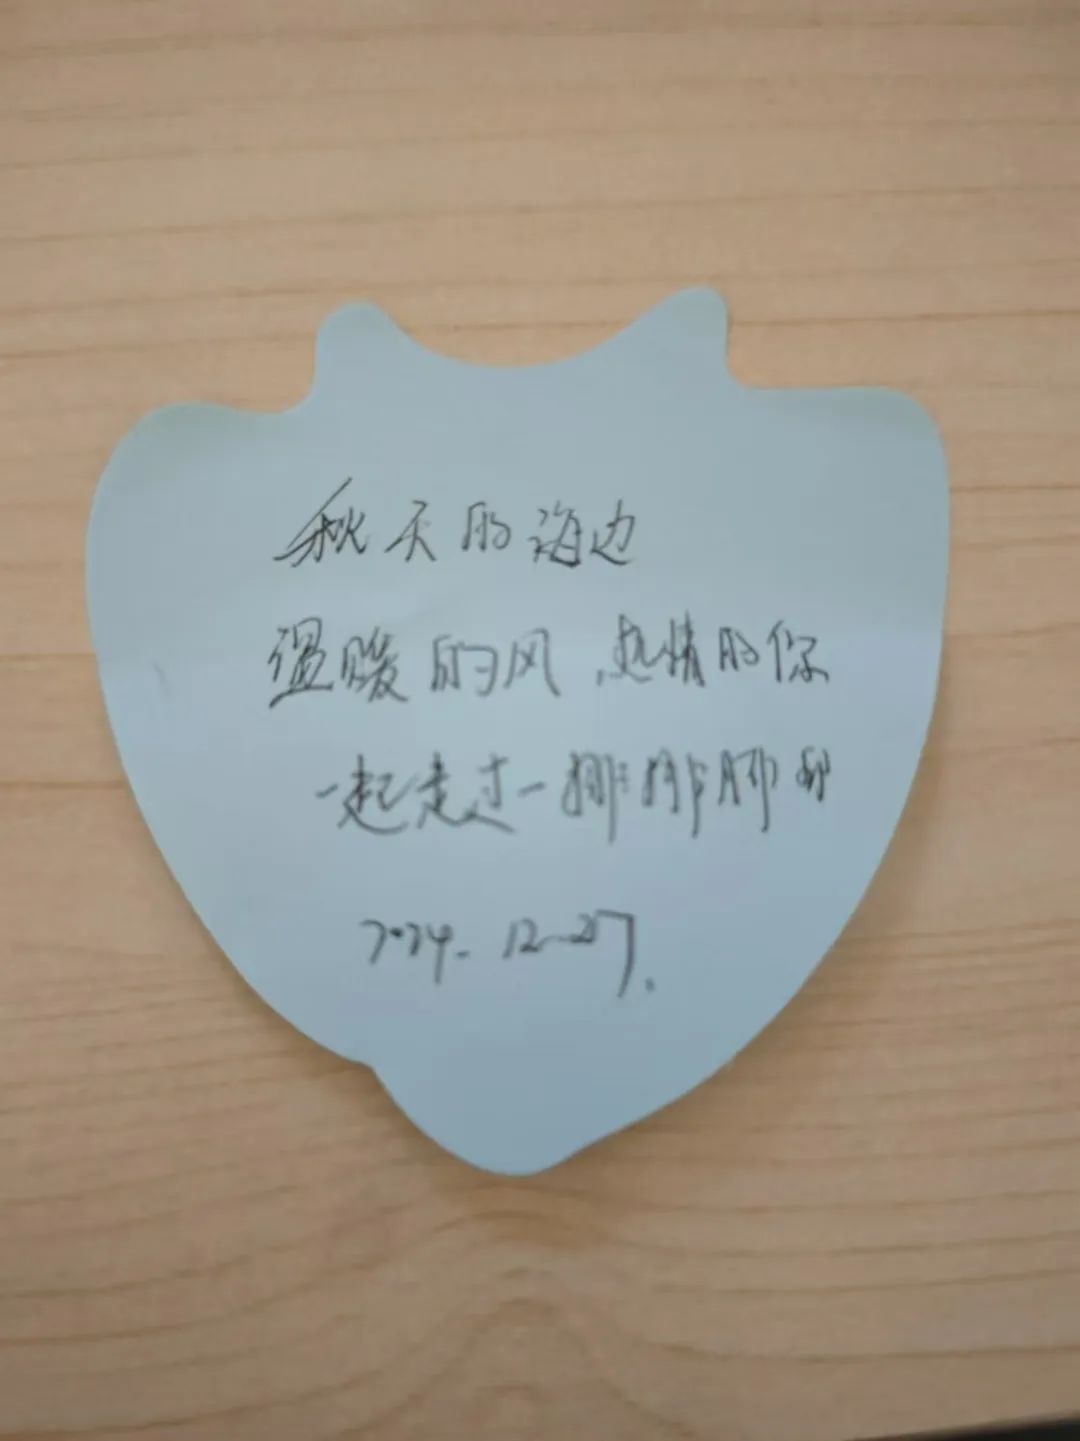 秋天的海边
温暖的风，热情的你
一起走过一排排脚印
2024.12.27.